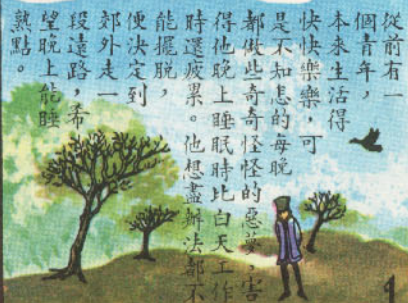 從前有一
個青年，
本來生活得
快快樂樂，可
是不知怎的每晚
都做些奇奇怪怪的惡夢，害
得他晚上睡眠時比白天工作
時還疲累。他想盡辦法都不
能擺脫，
便決定到
郊外走一
段遠路，希
望晚上能睡
熟點。
1